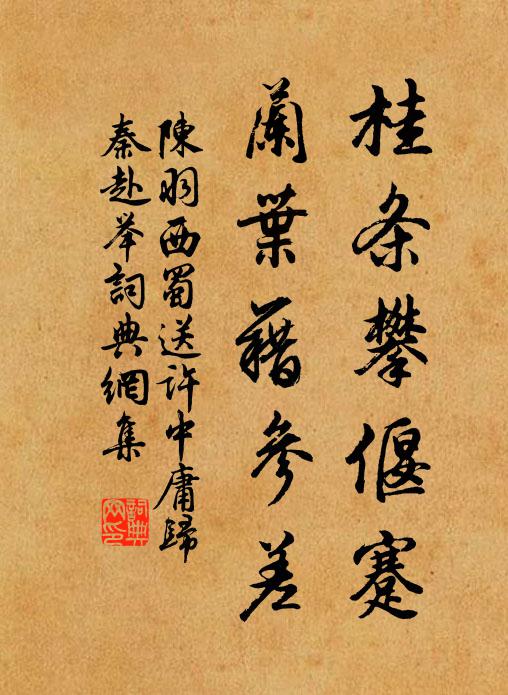 桂条攀偃蹇
蘭葉藉參差
陳羽西蜀送許中庸歸
秦赴举詞典網集
詞典网印